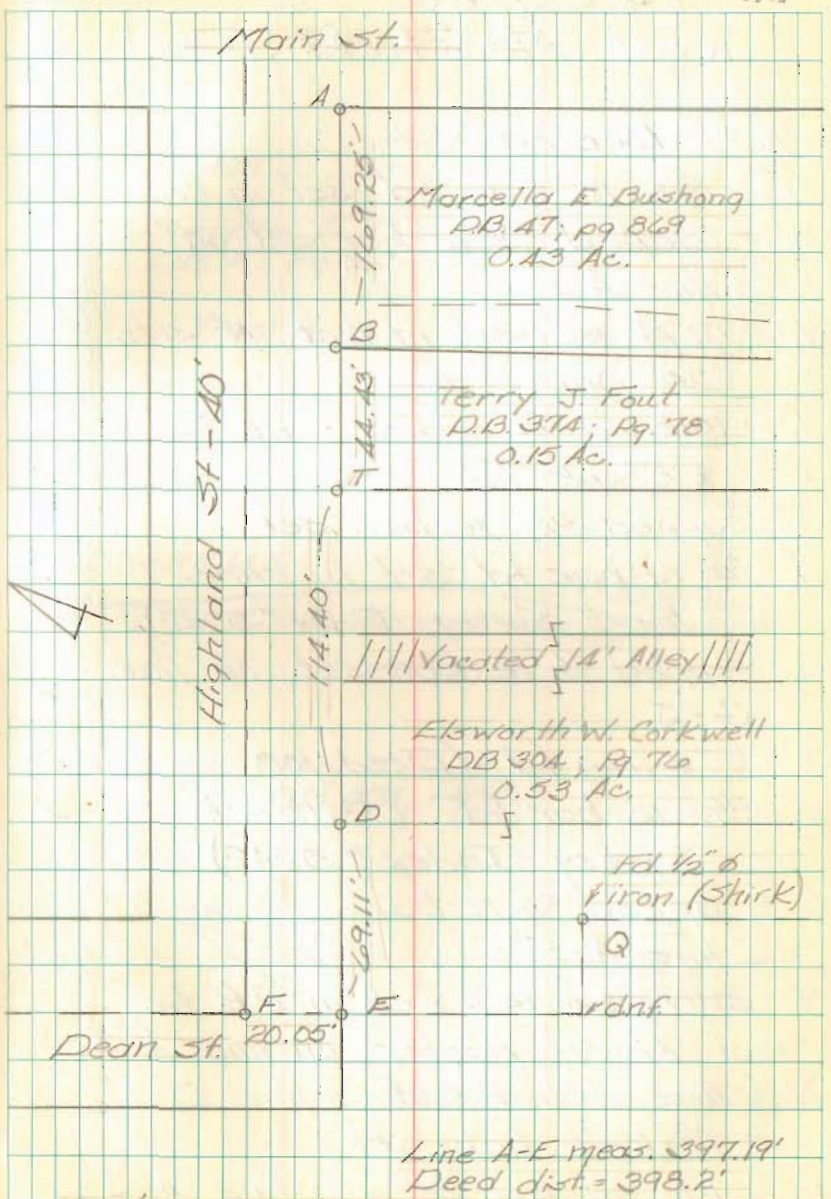 Main St.
A
169.25'
Marcella E Bushong
D.B. 47; pg 869
0.43 Ac.
B
44.43'
Terry J. Fout
D.B. 374; Pg. 78
0.15 Ac.
T
Highland St - 40'
114.40'
Vacated 14' Alley
Elsworth W. Corkwell
DB 304; Pg 76
0.53 Ac.
D
Fd. 1/2" ø
iron (Shirk)
69.11'
Q
F
E
dnf.
20.05'
Dean St.
Line A-E meas. 397.19'
Deed dist. = 398.2'